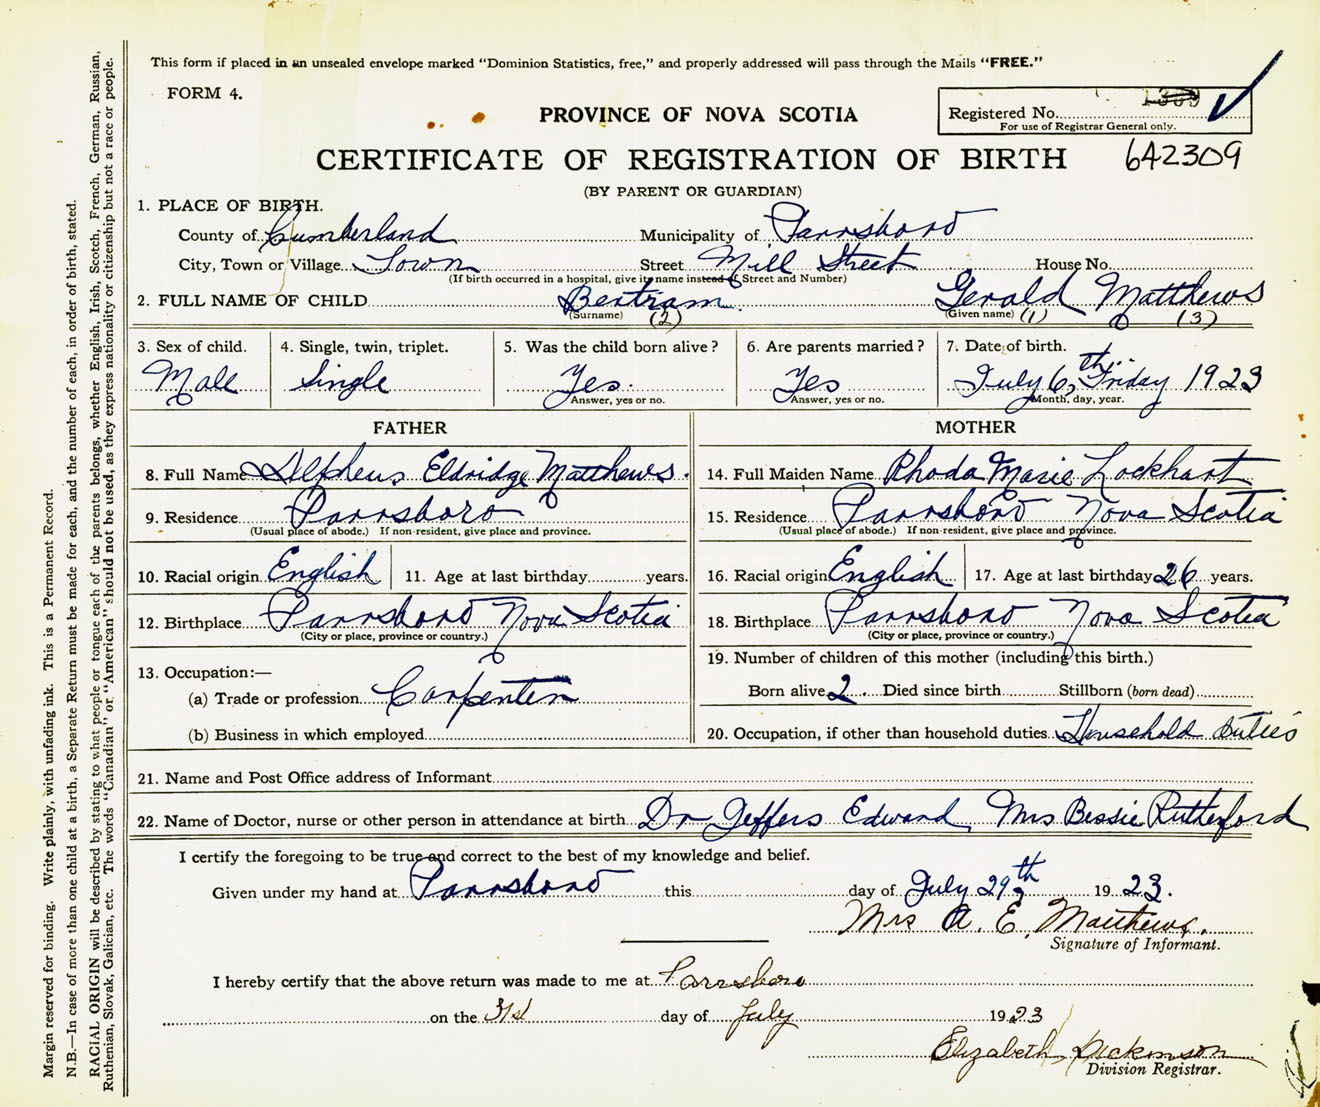 This form if placed in an unsealed envelope marked "Dominion Statistics, free," and properly addressed will pass through the Mails "FREE."
FORM 4.
Registered No.
For use of Registrar General only.
PROVINCE OF NOVA SCOTIA
CERTIFICATE OF REGISTRATION OF BIRTH 642309
(BY PARENT OR GUARDIAN)
1. PLACE OF BIRTH.
County of Cumberland Municipality of Parrsboro
City, Town or Village Town Street Mill Street House No.
(If birth occurred in a hospital, give its name instead of Street and Number)
2. FULL NAME OF CHILD Bertram Gerald Matthews
(Surname) (2) (Given name) (1) (3)
3. Sex of child. 4. Single, twin, triplet. 5. Was the child born alive? 6. Are parents married? 7. Date of birth.
Male Single Yes. Yes July 6th, Friday 1923
Answer, yes or no. Answer, yes or no. Month, day, year.
FATHER MOTHER
8. Full Name Eldridge Matthews. 14. Full Maiden Name Rhoda Marie Lockhart
9. Residence Parrsboro 15. Residence Parrsboro Nova Scotia
(Usual place of abode.) If non-resident, give place and province. (Usual place of abode.) If non-resident, give place and province.
10. Racial origin English 11. Age at last birthday years. 16. Racial origin English 17. Age at last birthday 26 years.
12. Birthplace Parrsboro Nova Scotia 18. Birthplace Parrsboro Nova Scotia
(City or place, province or country.) (City or place, province or country.)
13. Occupation:— 19. Number of children of this mother (including this birth.)
(a) Trade or profession Carpenter Born alive 2. Died since birth Stillborn (born dead)
(b) Business in which employed 20. Occupation, if other than household duties Household duties
21. Name and Post Office address of Informant
22. Name of Doctor, nurse or other person in attendance at birth Dr Jeffers Edward, Mrs Bessie Rutherford
I certify the foregoing to be true and correct to the best of my knowledge and belief.
Given under my hand at Parrsboro this day of July 29th, 1923.
Mrs A. E. Matthews.
Signature of Informant.
I hereby certify that the above return was made to me at Parrsboro
on the 31st day of July 1923
Elizabeth Dickinson
Division Registrar.
Margin reserved for binding. Write plainly, with unfading ink. This is a Permanent Record.
N.B.—In case of more than one child at a birth, a Separate Return must be made for each, and the number of each, in order of birth, stated.
RACIAL ORIGIN will be described by stating to what people or tongue each of the parents belongs, whether English, Irish, Scotch, French, German, Russian,
Ruthenian, Slovak, Galician, etc. The words "Canadian" or "American" should not be used, as they express nationality or citizenship but not a race or people.